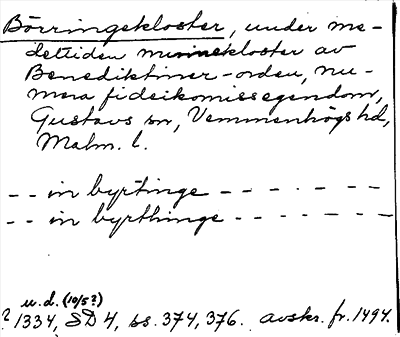 Börringekloster, under me-
deltiden munnekloster av
Benediktiner-orden, nu-
mera fideikomissegendom,
Gustavs sn, Vemmenhögs hd,
Malm. l.
-- in byrtinge -- - - - --
-- in byrthinge - - - - - - -
u.d. (10/5?)
? 1334, SD 4, ss. 374, 376. avskr. fr. 1494.